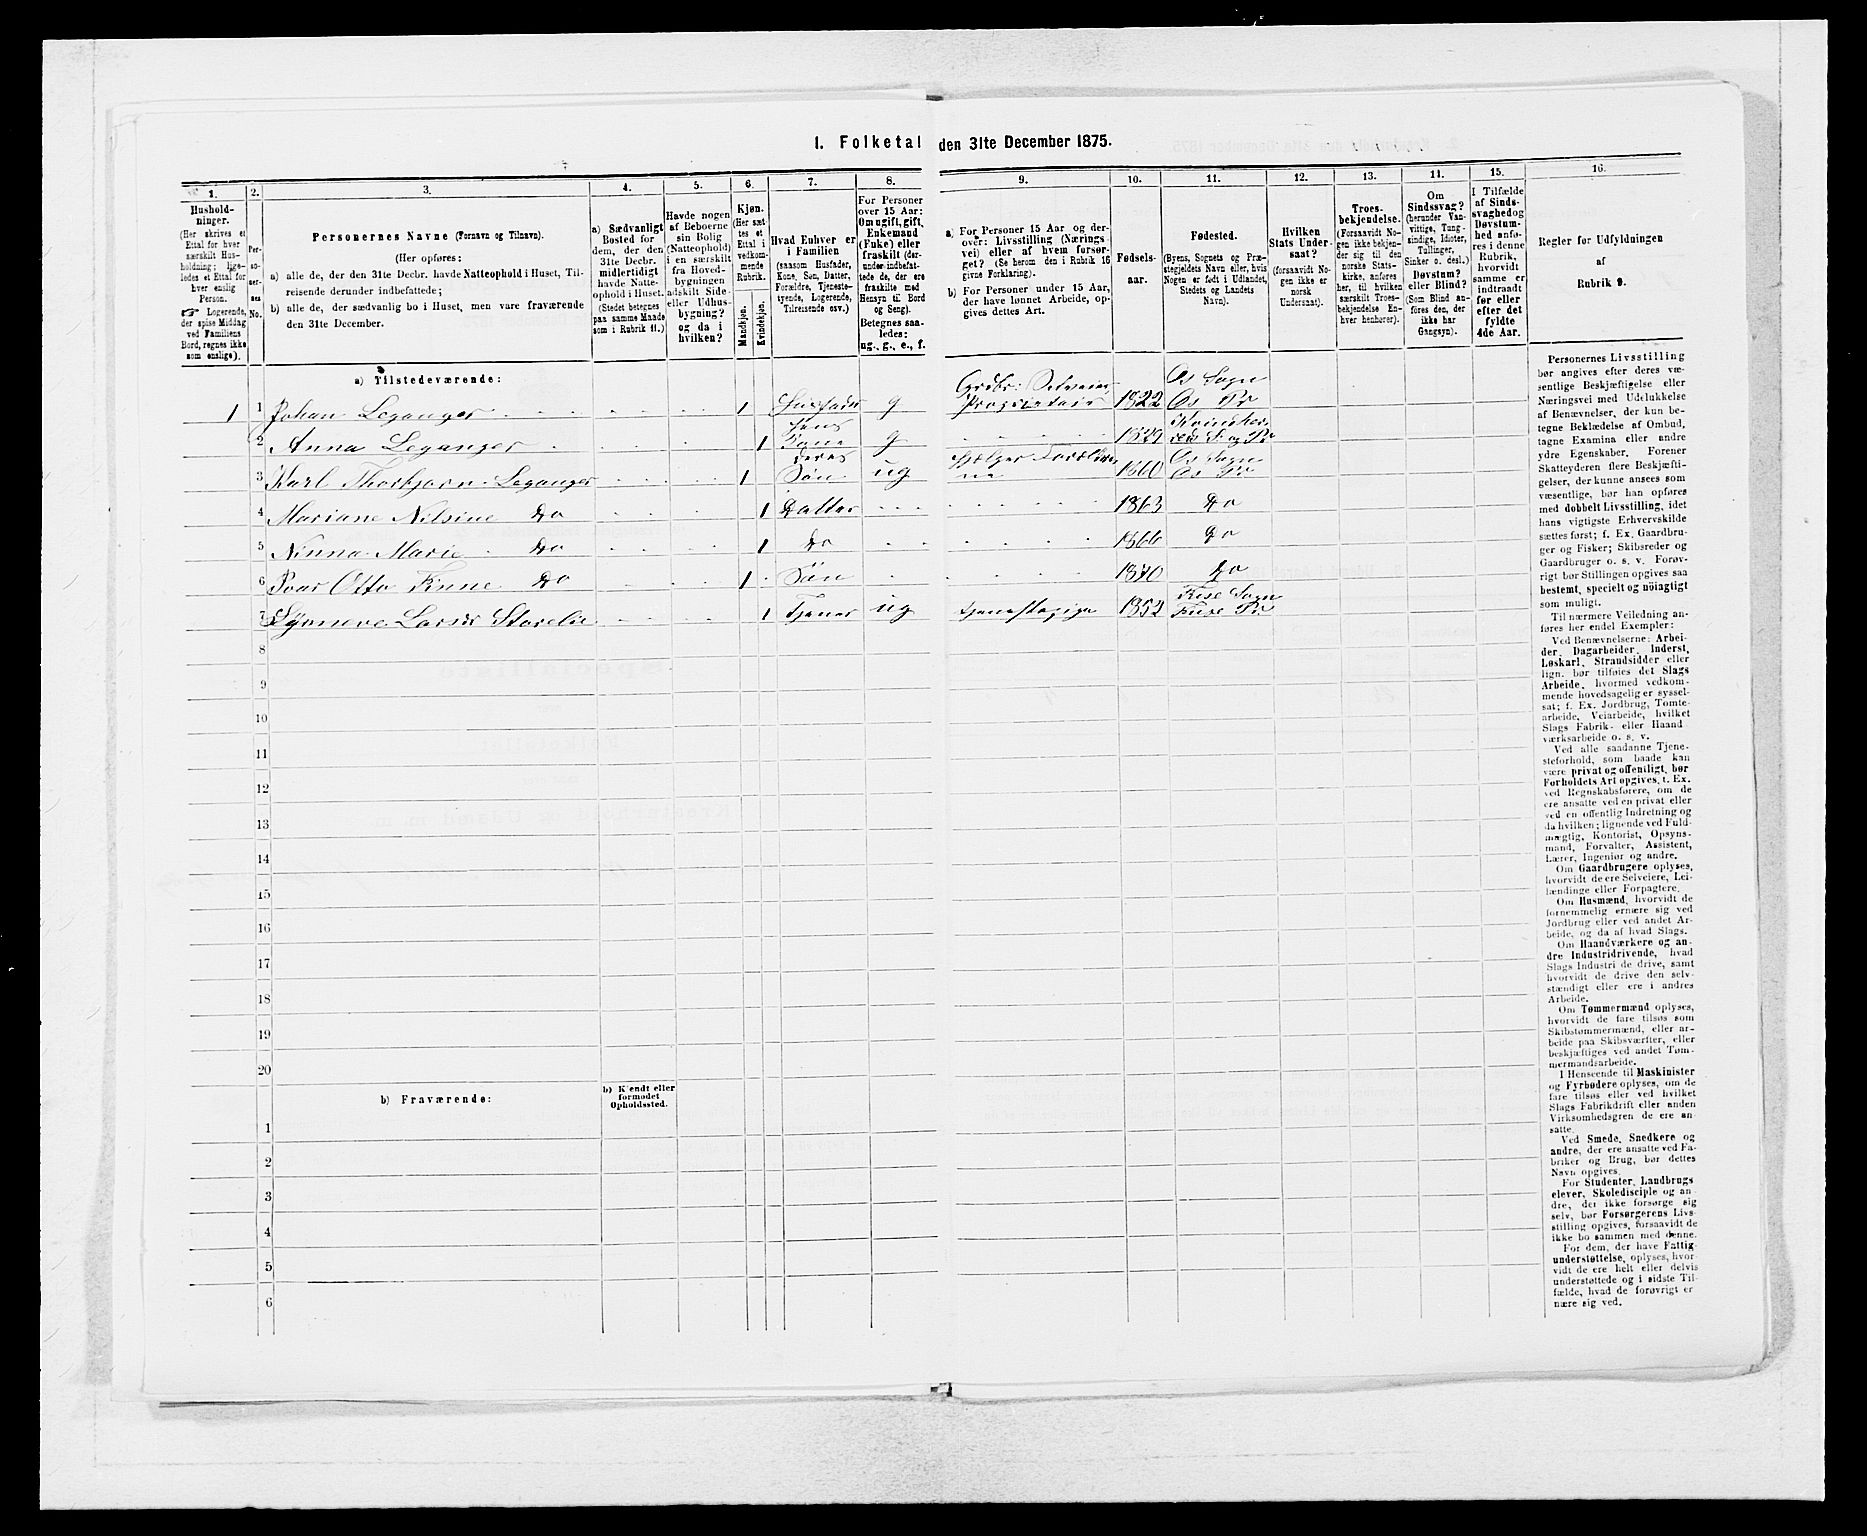 I. Folketal den 31te December 1875.
1. 2. 3. 4. 5. 6. 7. 8. 9. 10. 11. 12. 13. 14. 15. 16.
Hushold-
ninger.
(Her skrives et
Ettal for hver
særskilt Hus-
holdning; lige-
ledes et Ettal for
hver enslig
Person.
Logerende,
der spise Middag
ved Familiens
Bord, regnes ikke
som enslige).
Per-
so-
ner-
nes
No.
Personernes Navne (Fornavn og Tilnavn).
(Her opføres:
a) alle de, der den 31te Decbr. havde Natteophold i Huset, Til-
reisende derunder indbefattede;
b) alle de, der sædvanlig bo i Huset, men vare fraværende
den 31te December.
a) Sædvanligt
Bosted for
dem, der den
31te Decbr.
midlertidigt
havde Natte-
ophold i Huset.
(Stedet betegnes
paa samme Maade
som i Rubrik 11.)
Havde nogen
af Beboerne
sin Bolig
(Natteophold)
i en særskilt
fra Hoved-
bygningen
adskilt Side-
eller Udhus-
bygning?
og da i
hvilken?
Kjøn.
(Her sæt-
tes et
Ettal i
vedkom-
mende
Rubrik.
Mandkjøn.
Kvindekjøn.
Hvad Enhver er
i Familien
(saasom Husfader,
Kone, Søn, Datter,
Forældre, Tjeneste-
tyende, Logerende,
Tilreisende osv.)
For Personer
over 15 Aar:
Om ugift, gift,
Enkemand
(Enke) eller
fraskilt (der-
under indbefat-
tede de, der ere
fraskilte med
Hensyn til Bord
og Seng).
Betegnes saa-
ledes:
ug., g., e., f.
a) For Personer 15 Aar og der-
over: Livsstilling (Nærings-
vei) eller af hvem forsør-
get? (Se herom den i Rubrik 16
givne Forklaring).
b) For Personer under 15 Aar,
der have lønnet Arbeide, op-
gives dettes Art.
Fødsels-
aar.
Fødested.
(Byens, Sognets og Præ-
stegjeldets Navn eller, hvis
Nogen er født i Udlandet,
Stedets og Landets
Navn).
Hvilken
Stats Under-
saat?
(forsaavidt No-
gen ikke er
norsk
Undersaat).
Troes-
bekjendelse.
(Forsaavidt No-
gen ikke bekjen-
der sig til den
norske Stats-
kirke, anføres
her, til hvilken
særskilt Troes-
bekjendelse En-
hver henhører).
Om
Sindssvag?
(herunder Van-
vittige, Tung-
sindige, Idioter,
Tullinger,
Sinker o. desl.)
Døvstum?
eller Blind?
(Som Blind an-
føres den, der
ikke har
Gangsyn).
I Tilfælde
af Sinds-
svaghed og
Døvstum-
hed anfø-
res i denne
Rubrik,
hvorvidt
samme er
indtraadt
før eller
efter det
fyldte
4de Aar.
Regler for Udfyldningen
af
Rubrik 9.
a) Tilstedeværende:
1 1 Johan Leganger 1 Husfader g Grdbr: Selveier, Proprietair 1822 Os Sogn Os Pr
2 Anna Leganger 1 hans Kone g 1829 Kvindher-
reds S og Pr
3 Karl Thorbjørn Leganger 1 deres Søn ug hjælper Foræl 1860 Os Sogn Os Pr
4 Mariane Nilsine Do 1 Datter 1863 Do
5 Ninna Marie Do 1 Do 1866 Do
6 Otto Finne Do 1 Søn 1870 Do
7 Synneve Larsdr 1 Tjener ug 1852 Fuse Sogn Fuse Pr
8
9
10
11
12
13
14
15
16
17
18
19
20
b) Fraværende:
b) Kjendt eller
formodet
Opholdssted.
1
2
3
4
5
6
Personernes Livsstilling
bør angives efter deres væ-
sentlige Beskjæftigelse eller
Næringsvei med Udelukkelse
af Benævnelser, der kun be-
tegne Beklædelse af Ombud,
tagne Examina eller andre
ydre Egenskaber. Forener
Skatteyderen flere Beskjæfti-
gelser, der kunne ansees som
væsentlige, bør han opføres
med dobbelt Livsstilling, idet
hans vigtigste Erhvervskilde
sættes først; f. Ex. Gaardbru-
ger og Fisker; Skibsreder og
Gaardbruger o. s. v. Forøv-
rigt bør Stillingen opgives saa
bestemt, specielt og nøiagtigt
som muligt.
Til nærmere Veiledning an-
føres her endel Exempler:
Ved Benævnelserne: Arbei-
der, Dagarbeider, Inderst,
Løskarl, Strandsidder eller
lign. bør tilføies det Slags
Arbeide, hvormed vedkom-
mende hovedsagelig er syssel-
sat; f. Ex. Jordbrug, Tomte-
arbeide, Veiarbeide, hvilket
Slags Fabrik- eller Haand
værksarbeide o. s. v.
Ved alle saadanne Tjene-
steforhold, som baade kan
være privat og offentligt, bør
Forholdets Art opgives, t. Ex.
ved Regnskabsførere, om de
ere ansatte ved en privat eller
ved en offentlig Indretning og
da hvilken; lignende ved Fuld-
mægtig, Kontorist, Opsyns-
mand, Forvalter, Assistent,
Lærer, Ingeniør og andre.
Om Gaardbrugere oplyses,
hvorvidt de ere Selveiere, Lei-
lændinge eller Forpagtere.
Om Husmænd, hvorvidt de
fornemmelig ernære sig ved
Jordbrug eller ved andet Ar-
beide, og da af hvad Slags.
Om Haandværkere og an-
dre Industridrivende, hvad
Slags Industri de drive, samt
hvorvidt de drive den selv-
stændigt eller ere i andres
Arbeide.
Om Tømmermænd oplyses,
hvorvidt de fare tilsøs som
Skibstømmermænd, eller ar-
beide paa Skibsværfter, eller
beskjæftiges ved andet Tøm-
mermandsarbeide.
I Henseende til Maskinister
og Fyrbødere oplyses, om de
fare tilsøs eller ved hvilket
Slags Fabrikdrift eller anden
Virksomhedsgren de ere an-
satte.
Ved Smede, Snedkere og
andre, der ere ansatte ved Fa-
briker og Brug, bør dettes
Navn opgives.
For Studenter, Landbrugs
elever, Skoledisciple og an-
dre, der ikke forsørge sig
selv, bør Forsørgerens Livs-
stilling opgives, forsaavidt de
ikke bo sammen med denne.
For dem, der have Fattig-
understøttelse, oplyses, hvor-
vidt de ere helt eller delvis
understøttede og i sidste Til-
fælde, hvad de forøvrigt er
nære sig ved.